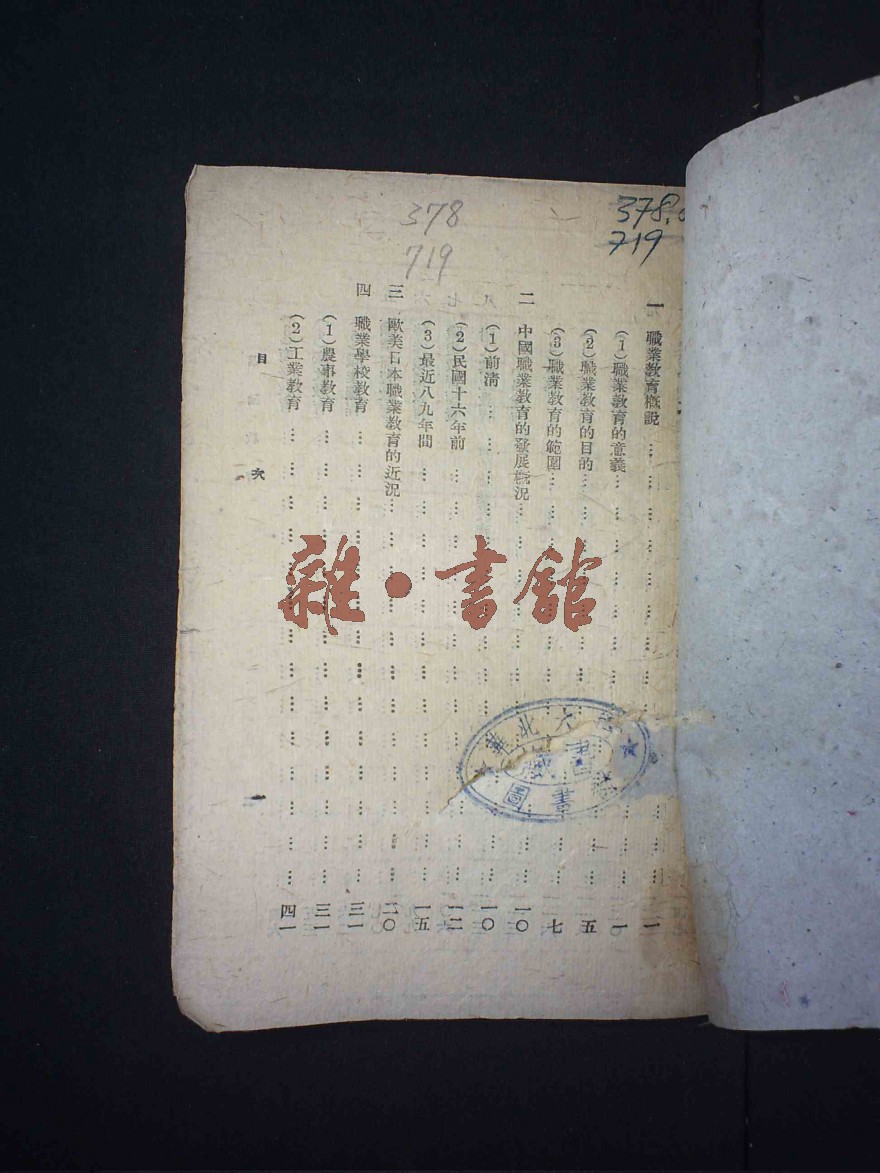 378
719
378.
719
一 職業教育概說 … … … … … … … … … 一
(1)職業教育的意義 … … … … … … … … 一
(2)職業教育的目的 … … … … … … … … 五
(3)職業教育的範圍 … … … … … … … … 七
二 中國職業教育的發展概況 … … … … … … … 一〇
(1)前清 … … … … … … … … … … 一〇
(2)民國十六年前 … … … … … … … … … 一二
(3)最近八九年間 … … … … … … … … … 一五
三 歐美日本職業教育的近況 … … … … … … … … 二〇
四 職業學校教育 … … … … … … … … … 三一
(1)農事教育 … … … … … … … … … … 三一
(2)工業教育 … … … … … … … … … … 四一
目 次
一
雜·書館
華北大
圖書